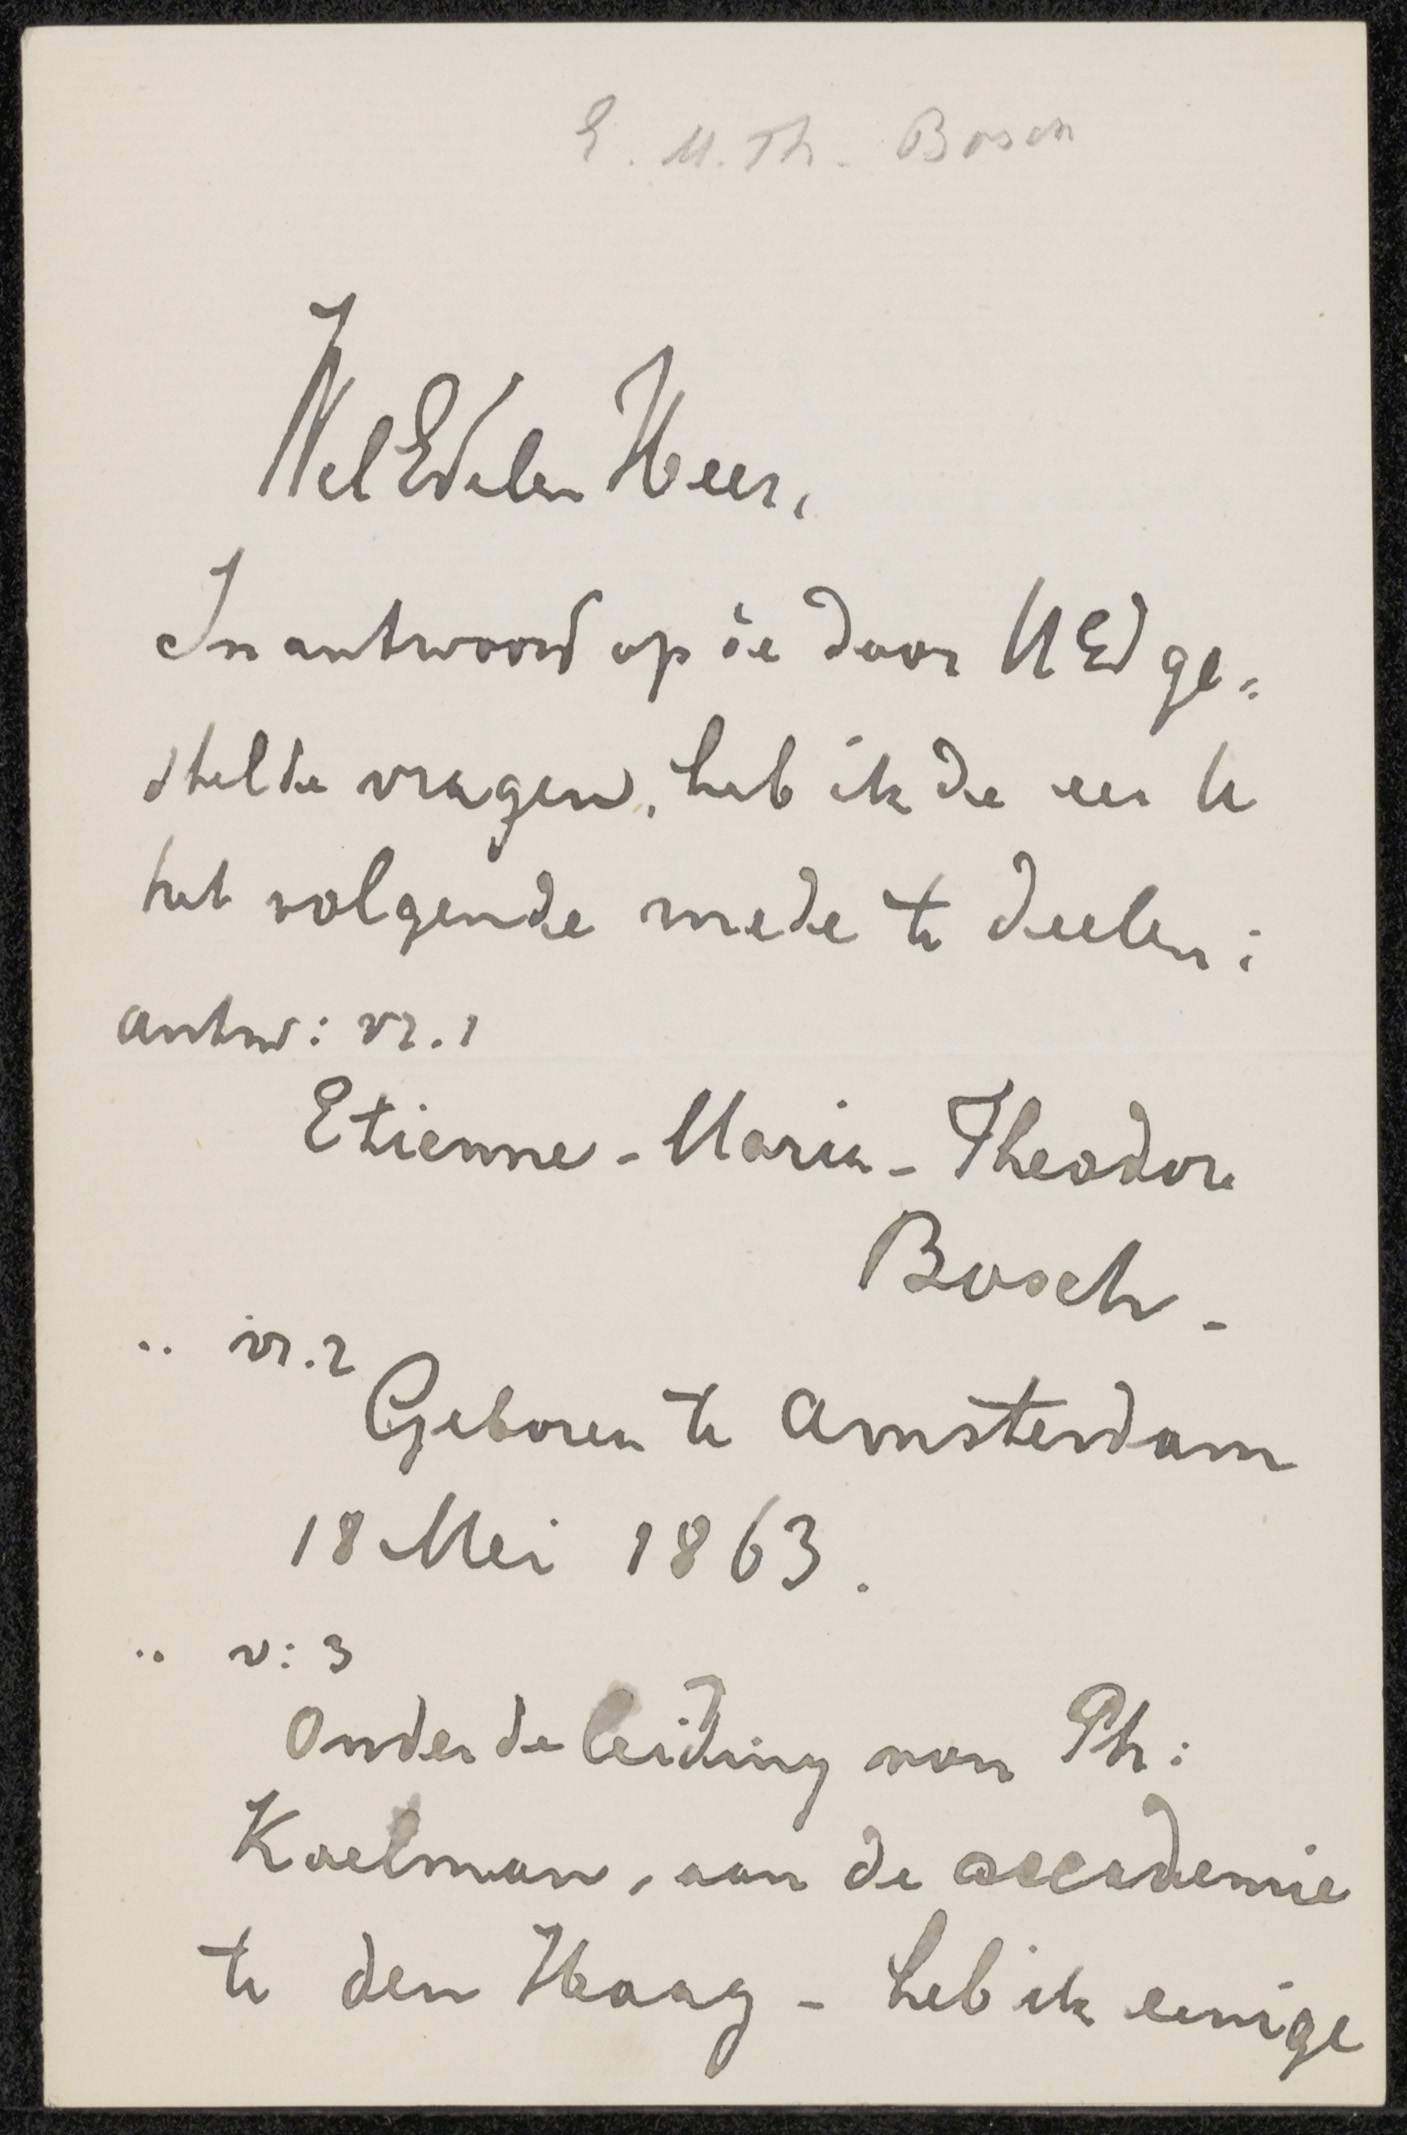 E. M. Th. Bosch
WelEdelen Heer,
In antwoord op de door UEd ge=
stelde vragen, heb ik de eer U
het volgende mede te deelen:
antw: vr. 1
Etienne - Maria - Theodore
Bosch -
.. vr. 2
Geboren te Amsterdam
18 Mei 1863.
.. v: 3
Onder de leiding van Ph:
Koelman, aan de accademie
te den Haag - heb ik eenige